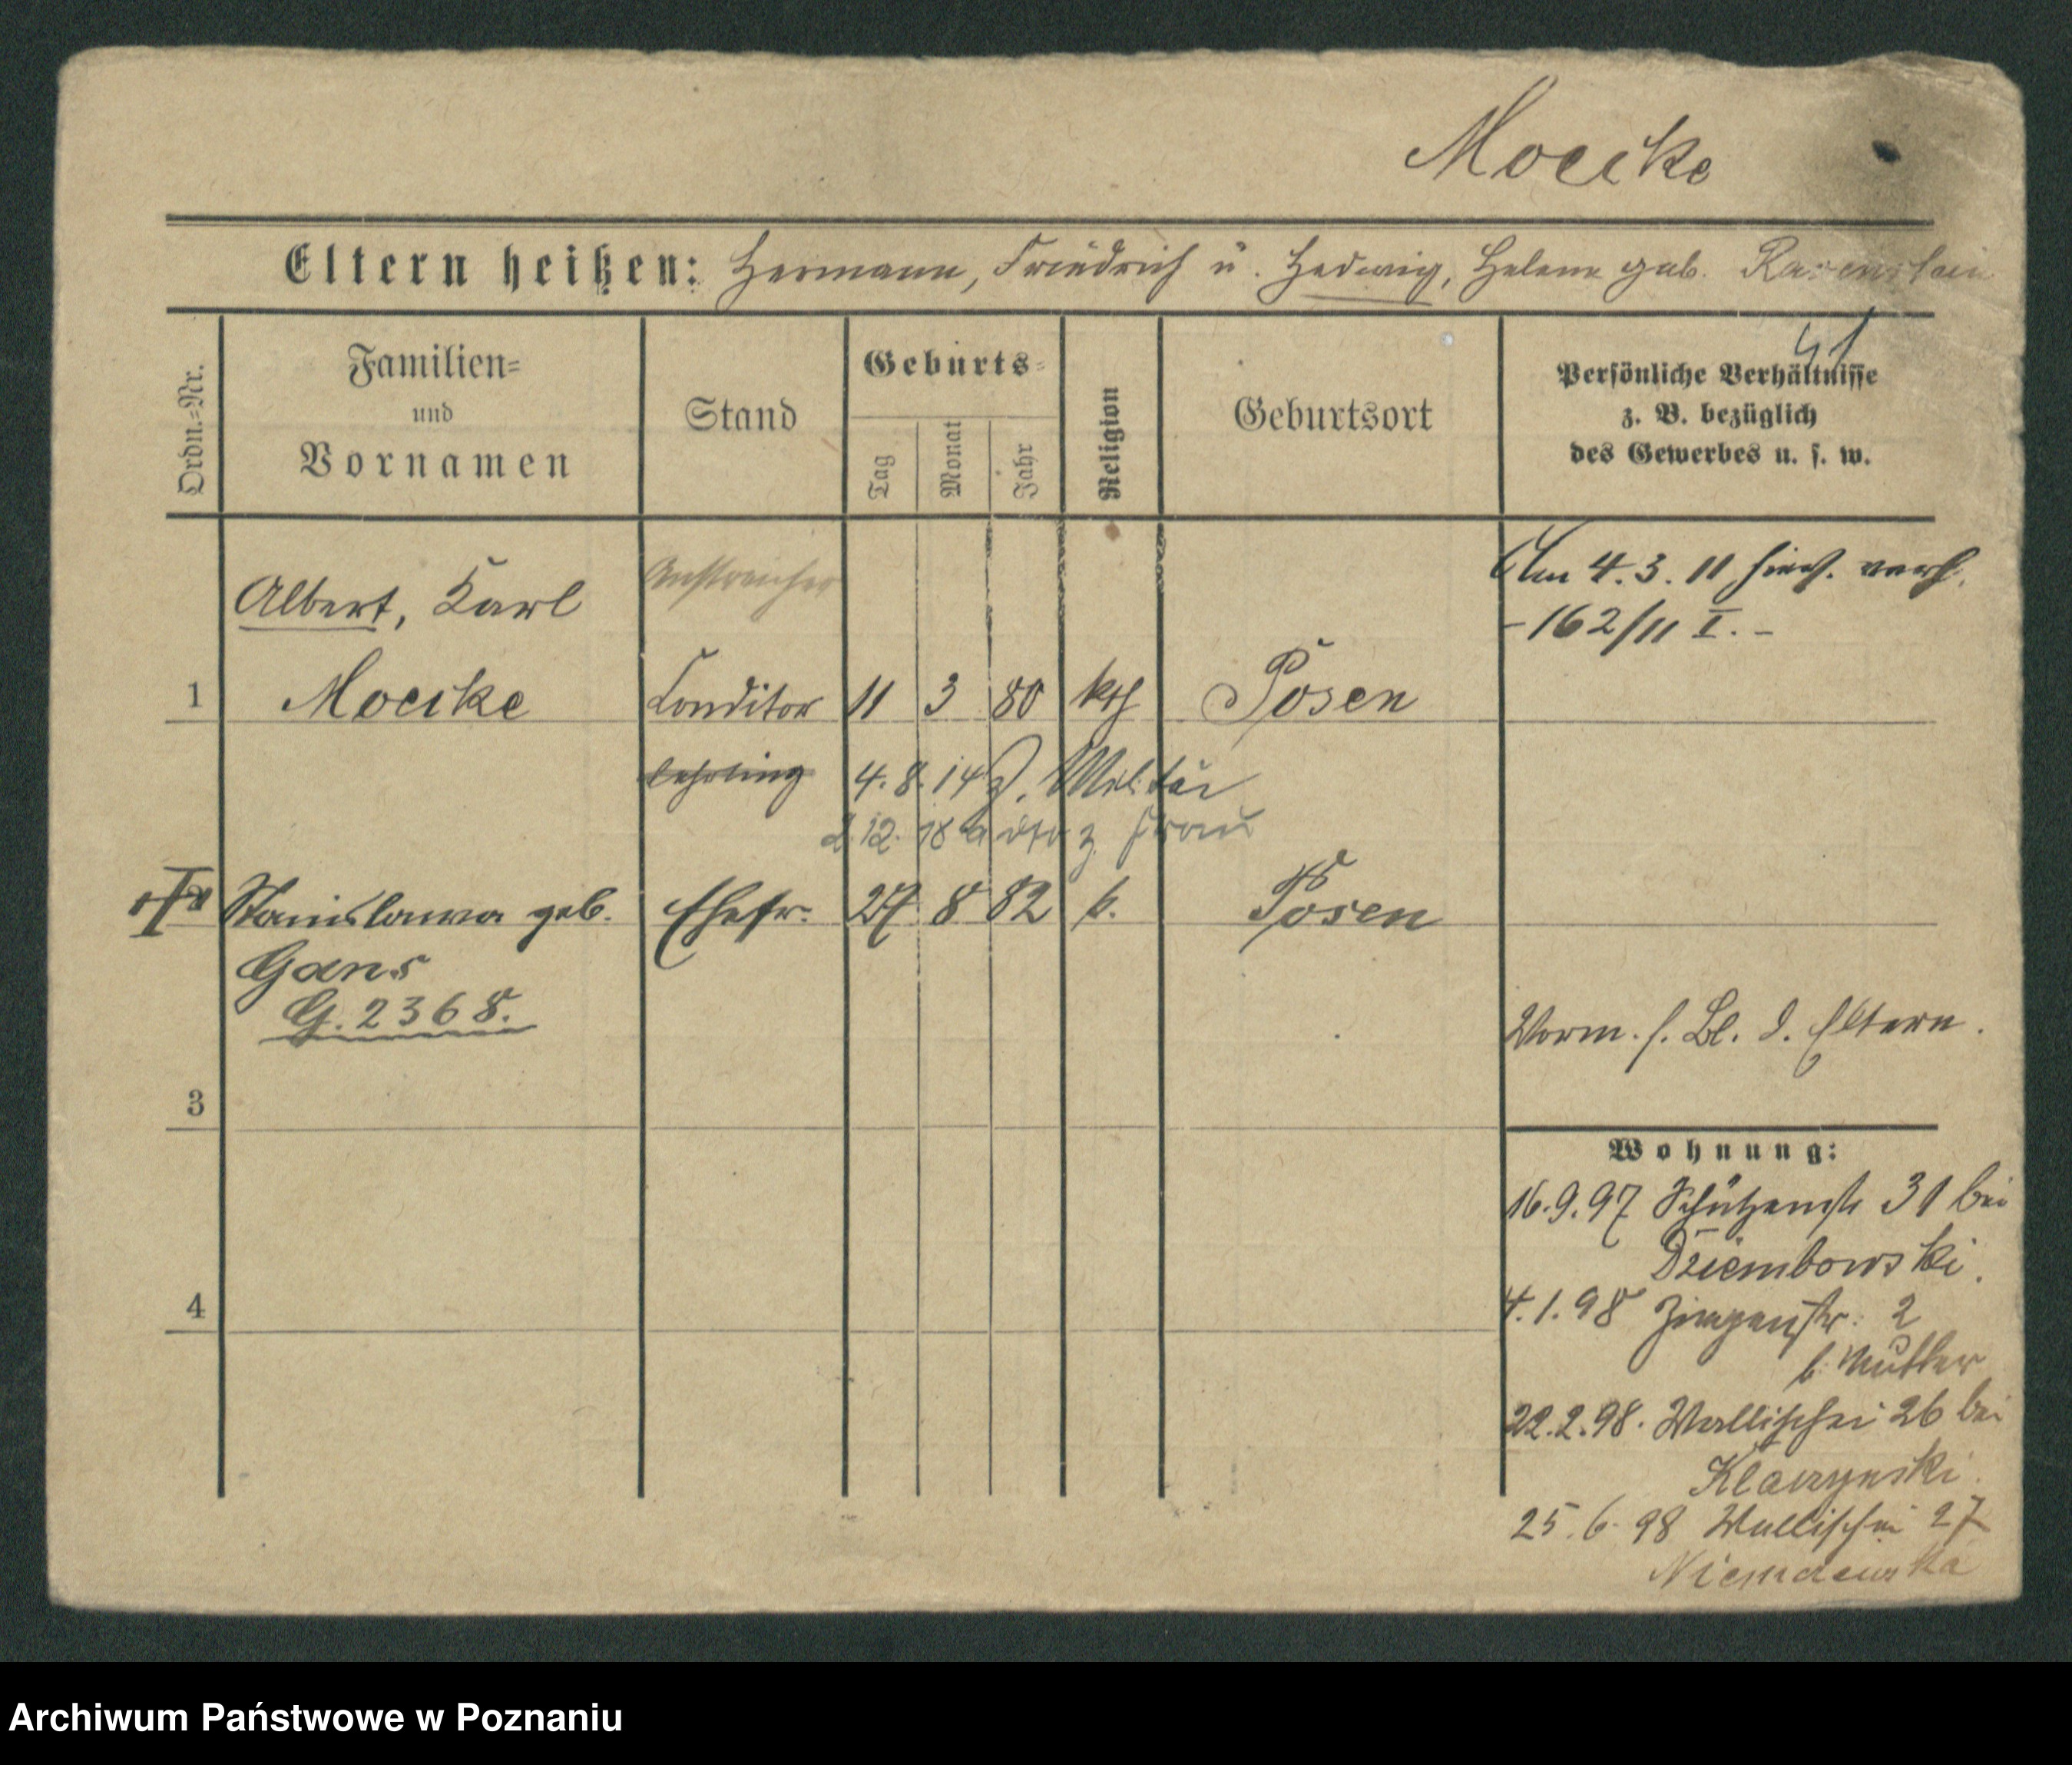 Moecke
Eltern heißen: Hermann, Friedrich u. Hedwig, Helene geb.
Ordn.=Nr.
Familien=
und
Vornamen
Stand
Geburts=
Tag
Monat
Jahr
Religion
Geburtsort
Persönliche Verhältnisse
z. B. bezüglich
des Gewerbes u. s. w.
Anstreicher
Am 4. 3. 11 hies. verh.
Albert, Karl
- 162/11 I. -
1 Moecke Conditor 11 3 80 kth Posen
lehrling 4. 8. 14 z. Militär
2. 12. 18 z. Frau
Stanislawa geb. Ehefr. 27 8 82 k. Posen
Gans
G. 2368.
Vorm. s. Bl. d. Eltern.
3
Wohnung:
16. 9. 97 Schützenstr 31 bei
Dziembowski.
4
4. 1. 98 Ziegenstr. 2
b. Mutter
22. 2. 98. Wallischei 26 bei
25. 6. 98 Wallischei 27
Archiwum Państwowe w Poznaniu